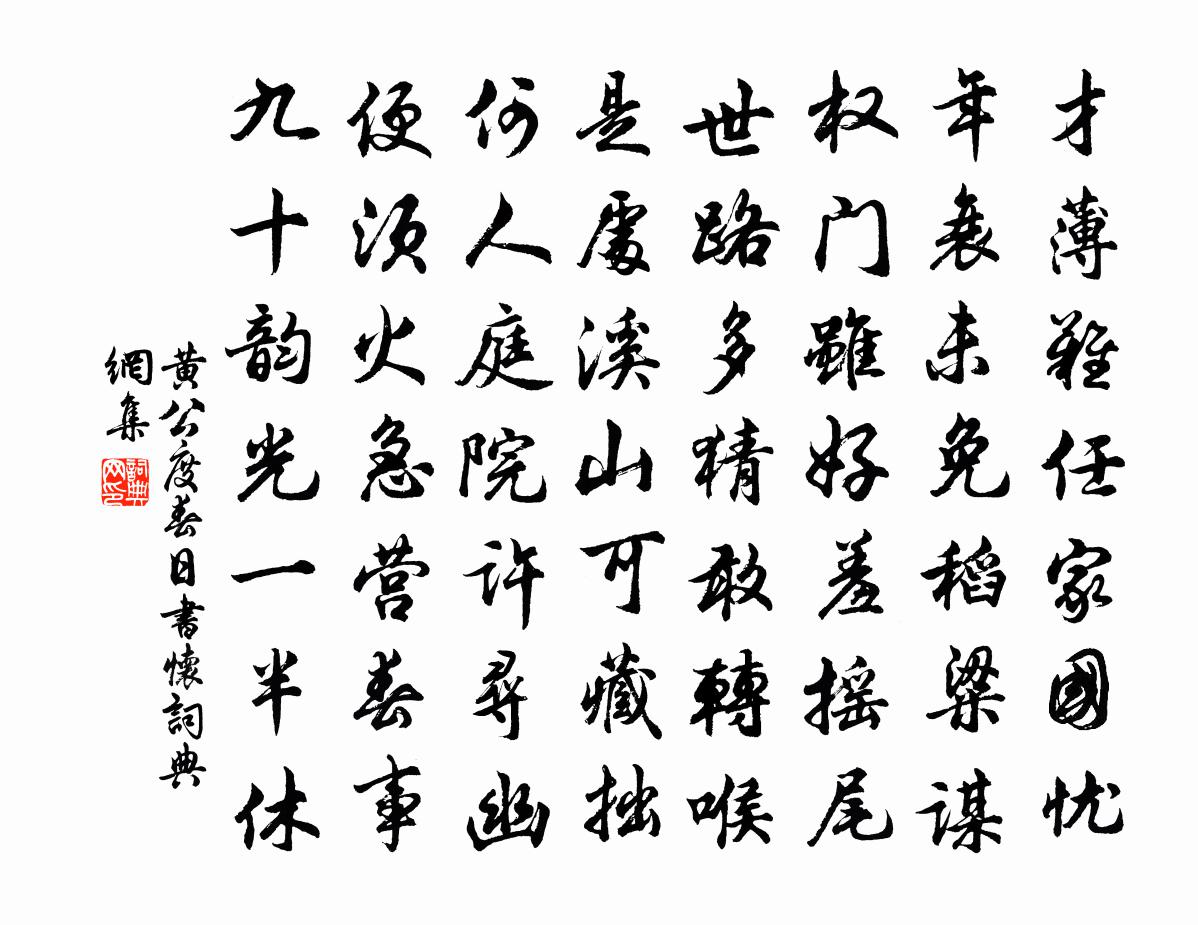 才薄难任家國忧
年衰未免稻粱谋
权门雖好羞摇尾
世路多猜敢轉喉
是處溪山可藏拙
何人庭院许尋幽
便须火急营春事
九十韵光一半休
黄公度春日書懷詞典
網集
詞典
网印